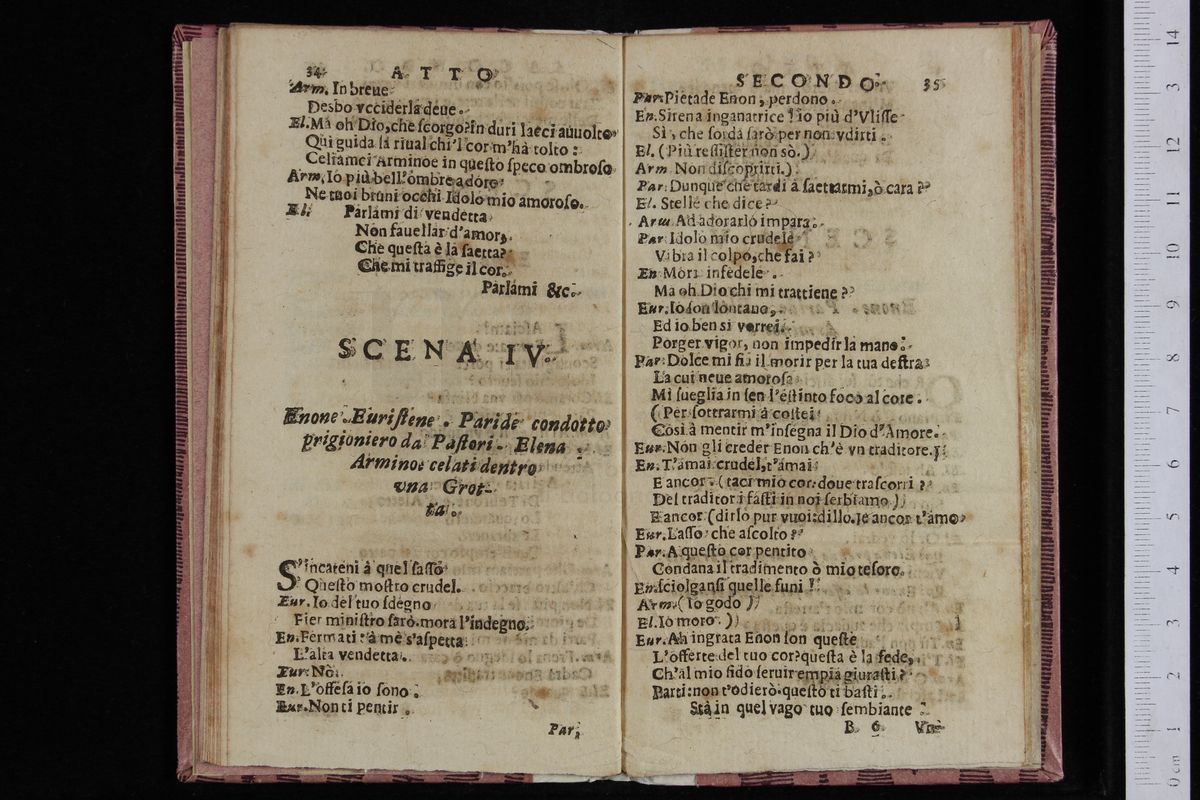 34 ATTO
Arm. In breue
Desbo vcciderla deue.
El. Ma oh Dio, che scorgo? In duri lacci auuolto
Qui guida la riual chi'l cor m'hà tolto:
Celiamci Arminoe in questo speco ombroso
Arm. Io più bell'ombre adoro
Ne tuoi bruni occhi Idolo mio amoroso.
El. Parlami di vendetta
Non fauellar d'amor,
Che questa è la saetta
Che mi traffige il cor.
Parlami &c.
SCENA IV.
Enone. Euristene. Paride condotto
prigioniero da Pastori. Elena
Arminoe celati dentro
vna Grot-
ta.
S'incateni à quel sasso
Questo mostro crudel.
Eur. Io del tuo sdegno
Fier ministro sarò. mora l'indegno.
En. Fermati: à mè s'aspetta
L'alta vendetta.
Eur. Nò.
En. L'offesa io sono.
Eur. Non ti pentir.
Par.
SECONDO. 35
Par. Pietade Enon, perdono.
En. Sirena inganatrice! io più d'Vlisse
Sì, che sorda sarò per non vdirti.
El. (Più ressister non sò.)
Arm. Non discoprirti.)
Par. Dunque che tardi à saettarmi, ò cara?
El. Stelle che dice?
Arm. Ad adorarlo impara.
Par. Idolo mio crudele
Vibra il colpo, che fai?
En. Mori infedele.
Ma oh Dio chi mi trattiene?
Eur. Io son lontano,
Ed io ben si vorrei
Porger vigor, non impedir la mano.
Par. Dolce mi fia il morir per la tua destra
La cui neue amorosa
Mi sueglia in sen l'estinto foco al core.
(Per sottrarmi à costei
Così à mentir m'insegna il Dio d'Amore.
Eur. Non gli creder Enon ch'è vn traditore.)
En. T'amai crudel, t'amai
E ancor. (taci mio cor: doue trascorri?
Del traditor i fasti in noi serbiamo.)
E ancor (dirlo pur vuoi: dillo.) e ancor t'amo
Eur. Lasso che ascolto?
Par. A questo cor pentito
Condana il tradimento ò mio tesoro.
En. sciolgansi quelle funi!
Arm. (Io godo)
El. Io moro.)
Eur. Ah ingrata Enon son queste
L'offerte del tuo cor? questa è la fede,
Ch'al mio fido seruir empia giurasti?
Parti: non t'odierò: questo ti basti.
Stà in quel vago tuo sembiante
B 6 Vn